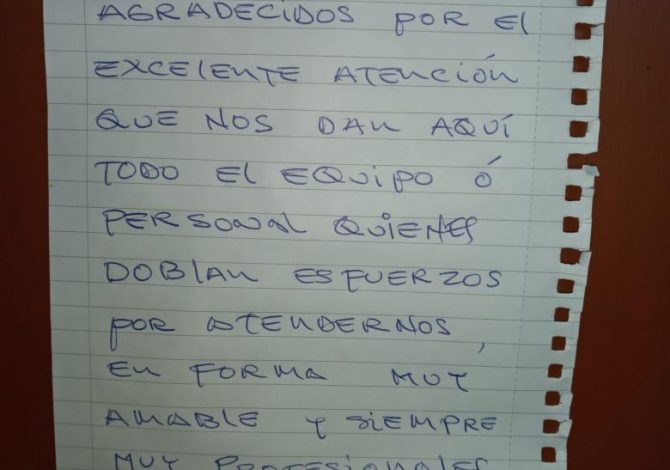 AGRADECIDOS POR El
EXCELENTE ATENCIÓN
QUE NOS DAN AQUÍ
TODO El EQUIPO Ó
PERSONAL QUIENES
DOBlAN ESFUERZOS
POR ATENDERNOS,
EN FORMA MUY
AMABLE Y SIEMPRE
MUY PROFESIONALES